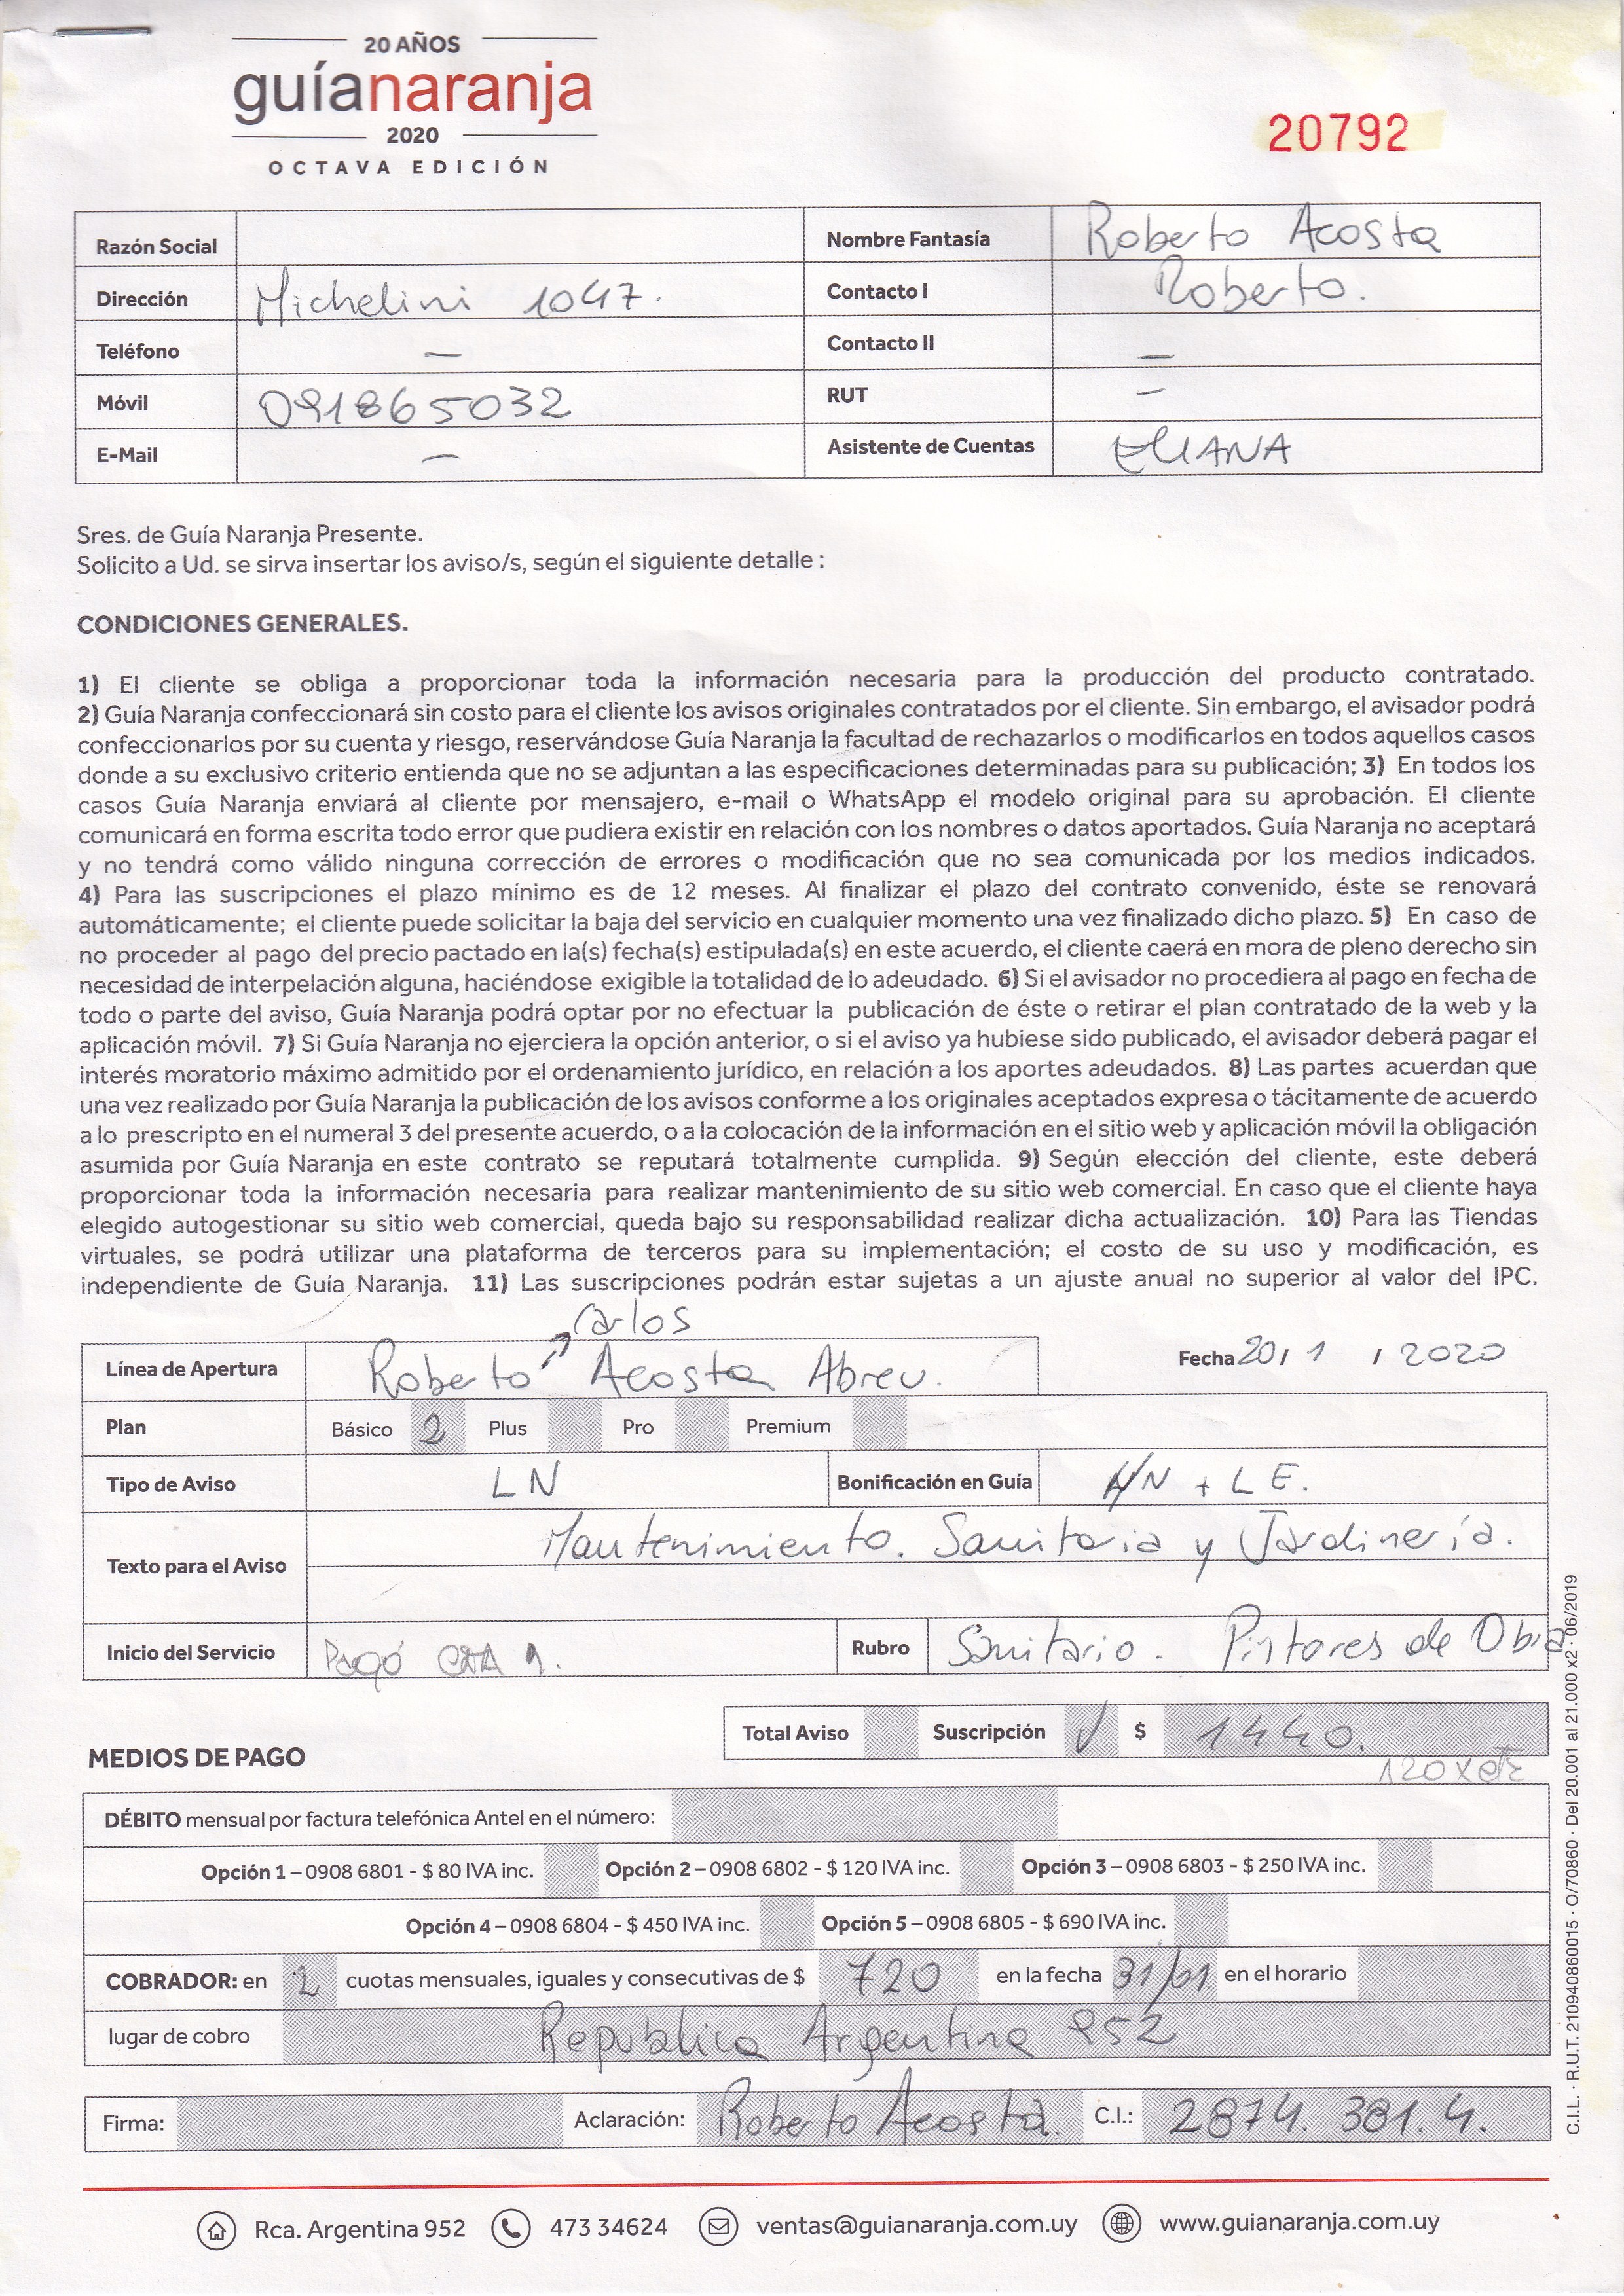 20 AÑOS
guíanaranja
2020
OCTAVA EDICIÓN
20792
Razón Social
Nombre Fantasía Roberto Acosta
Dirección Michelini 1047.
Contacto I Roberto.
Teléfono —
Contacto II —
Móvil 091865032
RUT —
E-Mail —
Asistente de Cuentas ELIANA
Sres. de Guía Naranja Presente.
Solicito a Ud. se sirva insertar los aviso/s, según el siguiente detalle :
CONDICIONES GENERALES.
1) El cliente se obliga a proporcionar toda la información necesaria para la producción del producto contratado.
2) Guía Naranja confeccionará sin costo para el cliente los avisos originales contratados por el cliente. Sin embargo, el avisador podrá
confeccionarlos por su cuenta y riesgo, reservándose Guía Naranja la facultad de rechazarlos o modificarlos en todos aquellos casos
donde a su exclusivo criterio entienda que no se adjuntan a las especificaciones determinadas para su publicación; 3) En todos los
casos Guía Naranja enviará al cliente por mensajero, e-mail o WhatsApp el modelo original para su aprobación. El cliente
comunicará en forma escrita todo error que pudiera existir en relación con los nombres o datos aportados. Guía Naranja no aceptará
y no tendrá como válido ninguna corrección de errores o modificación que no sea comunicada por los medios indicados.
4) Para las suscripciones el plazo mínimo es de 12 meses. Al finalizar el plazo del contrato convenido, éste se renovará
automáticamente; el cliente puede solicitar la baja del servicio en cualquier momento una vez finalizado dicho plazo. 5) En caso de
no proceder al pago del precio pactado en la(s) fecha(s) estipulada(s) en este acuerdo, el cliente caerá en mora de pleno derecho sin
necesidad de interpelación alguna, haciéndose exigible la totalidad de lo adeudado. 6) Si el avisador no procediera al pago en fecha de
todo o parte del aviso, Guía Naranja podrá optar por no efectuar la publicación de éste o retirar el plan contratado de la web y la
aplicación móvil. 7) Si Guía Naranja no ejerciera la opción anterior, o si el aviso ya hubiese sido publicado, el avisador deberá pagar el
interés moratorio máximo admitido por el ordenamiento jurídico, en relación a los aportes adeudados. 8) Las partes acuerdan que
una vez realizado por Guía Naranja la publicación de los avisos conforme a los originales aceptados expresa o tácitamente de acuerdo
a lo prescripto en el numeral 3 del presente acuerdo, o a la colocación de la información en el sitio web y aplicación móvil la obligación
asumida por Guía Naranja en este contrato se reputará totalmente cumplida. 9) Según elección del cliente, este deberá
proporcionar toda la información necesaria para realizar mantenimiento de su sitio web comercial. En caso que el cliente haya
elegido autogestionar su sitio web comercial, queda bajo su responsabilidad realizar dicha actualización. 10) Para las Tiendas
virtuales, se podrá utilizar una plataforma de terceros para su implementación; el costo de su uso y modificación, es
independiente de Guía Naranja. 11) Las suscripciones podrán estar sujetas a un ajuste anual no superior al valor del IPC.
Carlos
Línea de Apertura Roberto Acosta Abreu.
Fecha 20/ 1 / 2020
Plan Básico 2 Plus Pro Premium
Tipo de Aviso LN Bonificación en Guía N + LE.
Texto para el Aviso Mantenimiento. Sanitaria y Jardinería.
Inicio del Servicio Pagó 1. Rubro Sanitario. Pintores de Obra
Total Aviso Suscripción ✓ $ 1440.
MEDIOS DE PAGO
120 x
DÉBITO mensual por factura telefónica Antel en el número:
Opción 1 – 0908 6801 - $ 80 IVA inc. Opción 2 – 0908 6802 - $ 120 IVA inc. Opción 3 – 0908 6803 - $ 250 IVA inc.
Opción 4 – 0908 6804 - $ 450 IVA inc. Opción 5 – 0908 6805 - $ 690 IVA inc.
COBRADOR: en 2 cuotas mensuales, iguales y consecutivas de $ 720 en la fecha 31/01. en el horario
lugar de cobro Republica Argentina 952
Firma: Aclaración: Roberto Acosta. C.I.: 2874. 381. 4.
C.I.L. · R.U.T. 210940860015 · O/70860 · Del 20.001 al 21.000 x2 · 06/2019
Rca. Argentina 952 473 34624 ventas@guianaranja.com.uy www.guianaranja.com.uy